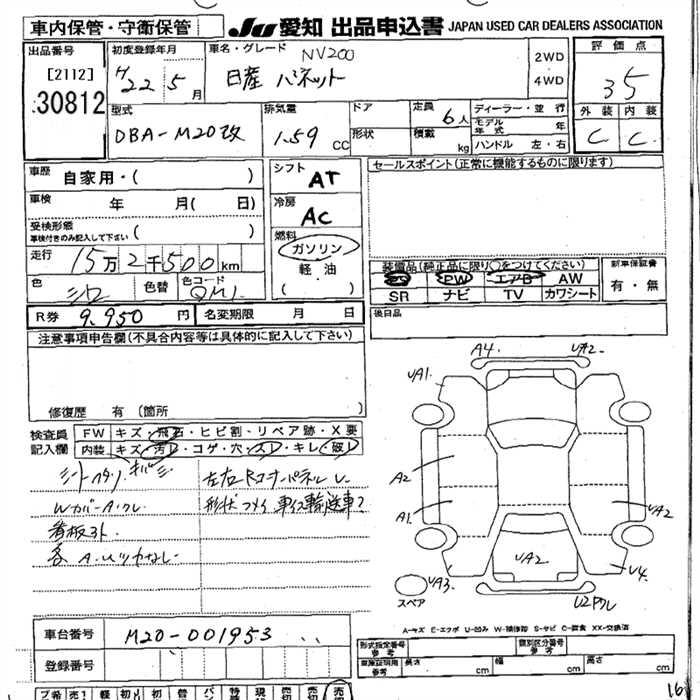 車内保管・守衛保管
JU 愛知 出品申込書 JAPAN USED CAR DEALERS ASSOCIATION
出品番号
[2112]
30812
初度登録年月
H22年5月
車名・グレード
NV200
日産 バネット
2WD
4WD
評価点
3.5
外装 内装
C C
型式
DBA-M20改
排気量
1.59 CC
ドア
形状
定員 6人
積載 kg
ディーラー・並行
モデル年式 年
ハンドル 左・右
車歴 自家用・( )
車検 年 月( 日)
受検形態
(車検付きのみ記入して下さい)( )
走行 15万2千500km
色 シロ 色替 色コード QM1
R券 9,950円 名変期限 月 日
シフト AT
冷房 AC
燃料
ガソリン
軽油
( )
セールスポイント(正常に機能するものに限ります)
装備品(純正品に限り○をつけてください)
PS PW エアB AW
SR ナビ TV カワシート
新車保証書
有・無
後日品
注意事項申告欄(不具合内容等は具体的に記入して下さい)
修復歴 有(箇所
検査員記入欄
FW キズ・飛石・ヒビ割・リペア跡・X要
内装 キズ・汚レ・コゲ・穴・スレ・キレ・破レ
左右Rコーナーパネル
看板アト
各A.U
A4 UA2
UA1
A2
A1
UA2
UA2
UA3
U4
スペア
A-キズ E-エクボ U-凹み W-補修跡 S-サビ C-腐食 XX-交換済
車台番号 M20-001953
登録番号
形式指定番号 参考
類別区分番号 参考
車庫証明用 参考
長さ cm 幅 cm 高さ cm
16